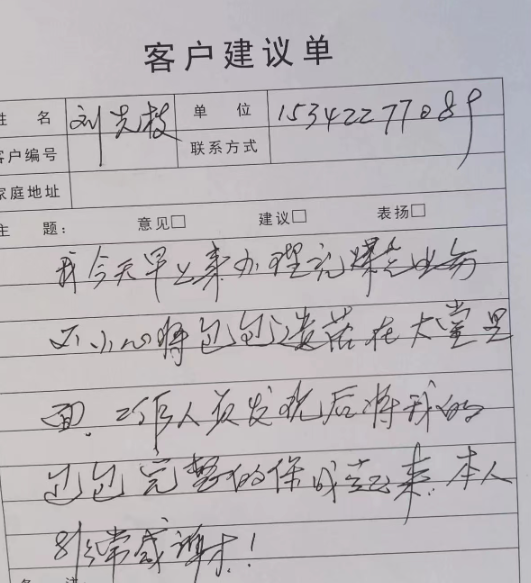 客户建议单
姓 名 刘先枝 单 位 15342277089
客户编号 联系方式
家庭地址
主 题： 意见□ 建议□ 表扬□
我今天早上来办理充煤气业务
不小心将包包遗落在大堂里
面，工作人员发现后将我的
包包完整的保存起来，本人
非常感谢！